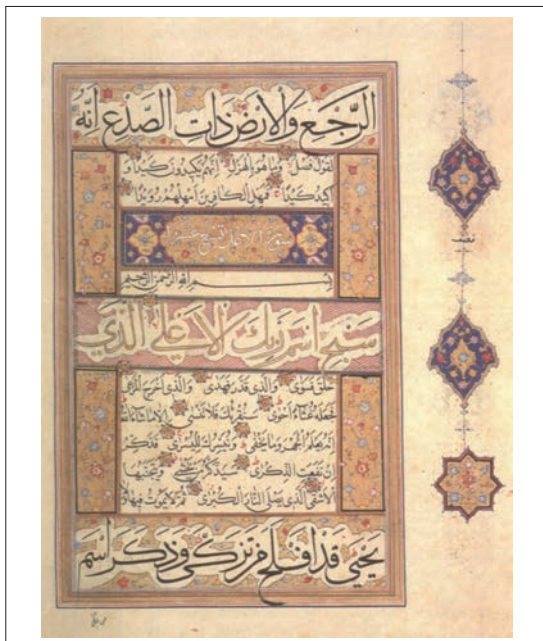 الرَّجْعِ وَالْاَرْضِ ذَاتِ الصَّدْعِ اِنَّهُ
لَقَوْلٌ فَصْلٌ وَمَا هُوَ بِالْهَزْلِ اِنَّهُمْ يَكِيدُونَ كَيْدًا وَ
اَكِيدُ كَيْدًا فَمَهِّلِ الْكَافِرِينَ اَمْهِلْهُمْ رُوَيْدًا
سورة الاعلى تسع عشر
بسم الله الرحمن الرحيم
سَبِّحِ اسْمَ رَبِّكَ الْاَعْلَى الَّذِي
خَلَقَ فَسَوَّى وَالَّذِي قَدَّرَ فَهَدَى وَالَّذِي اَخْرَجَ الْمَرْعَى
فَجَعَلَهُ غُثَاءً اَحْوَى سَنُقْرِئُكَ فَلَا تَنْسَى اِلَّا مَا شَاءَ اللهُ
اِنَّهُ يَعْلَمُ الْجَهْرَ وَمَا يَخْفَى وَنُيَسِّرُكَ لِلْيُسْرَى فَذَكِّرْ
اِنْ نَفَعَتِ الذِّكْرَى سَيَذَّكَّرُ مَنْ يَخْشَى وَيَتَجَنَّبُهَا
الْاَشْقَى الَّذِي يَصْلَى النَّارَ الْكُبْرَى ثُمَّ لَا يَمُوتُ فِيهَا وَلَا
يَحْيَى قَدْ اَفْلَحَ مَنْ تَزَكَّى وَذَكَرَ اسْمَ